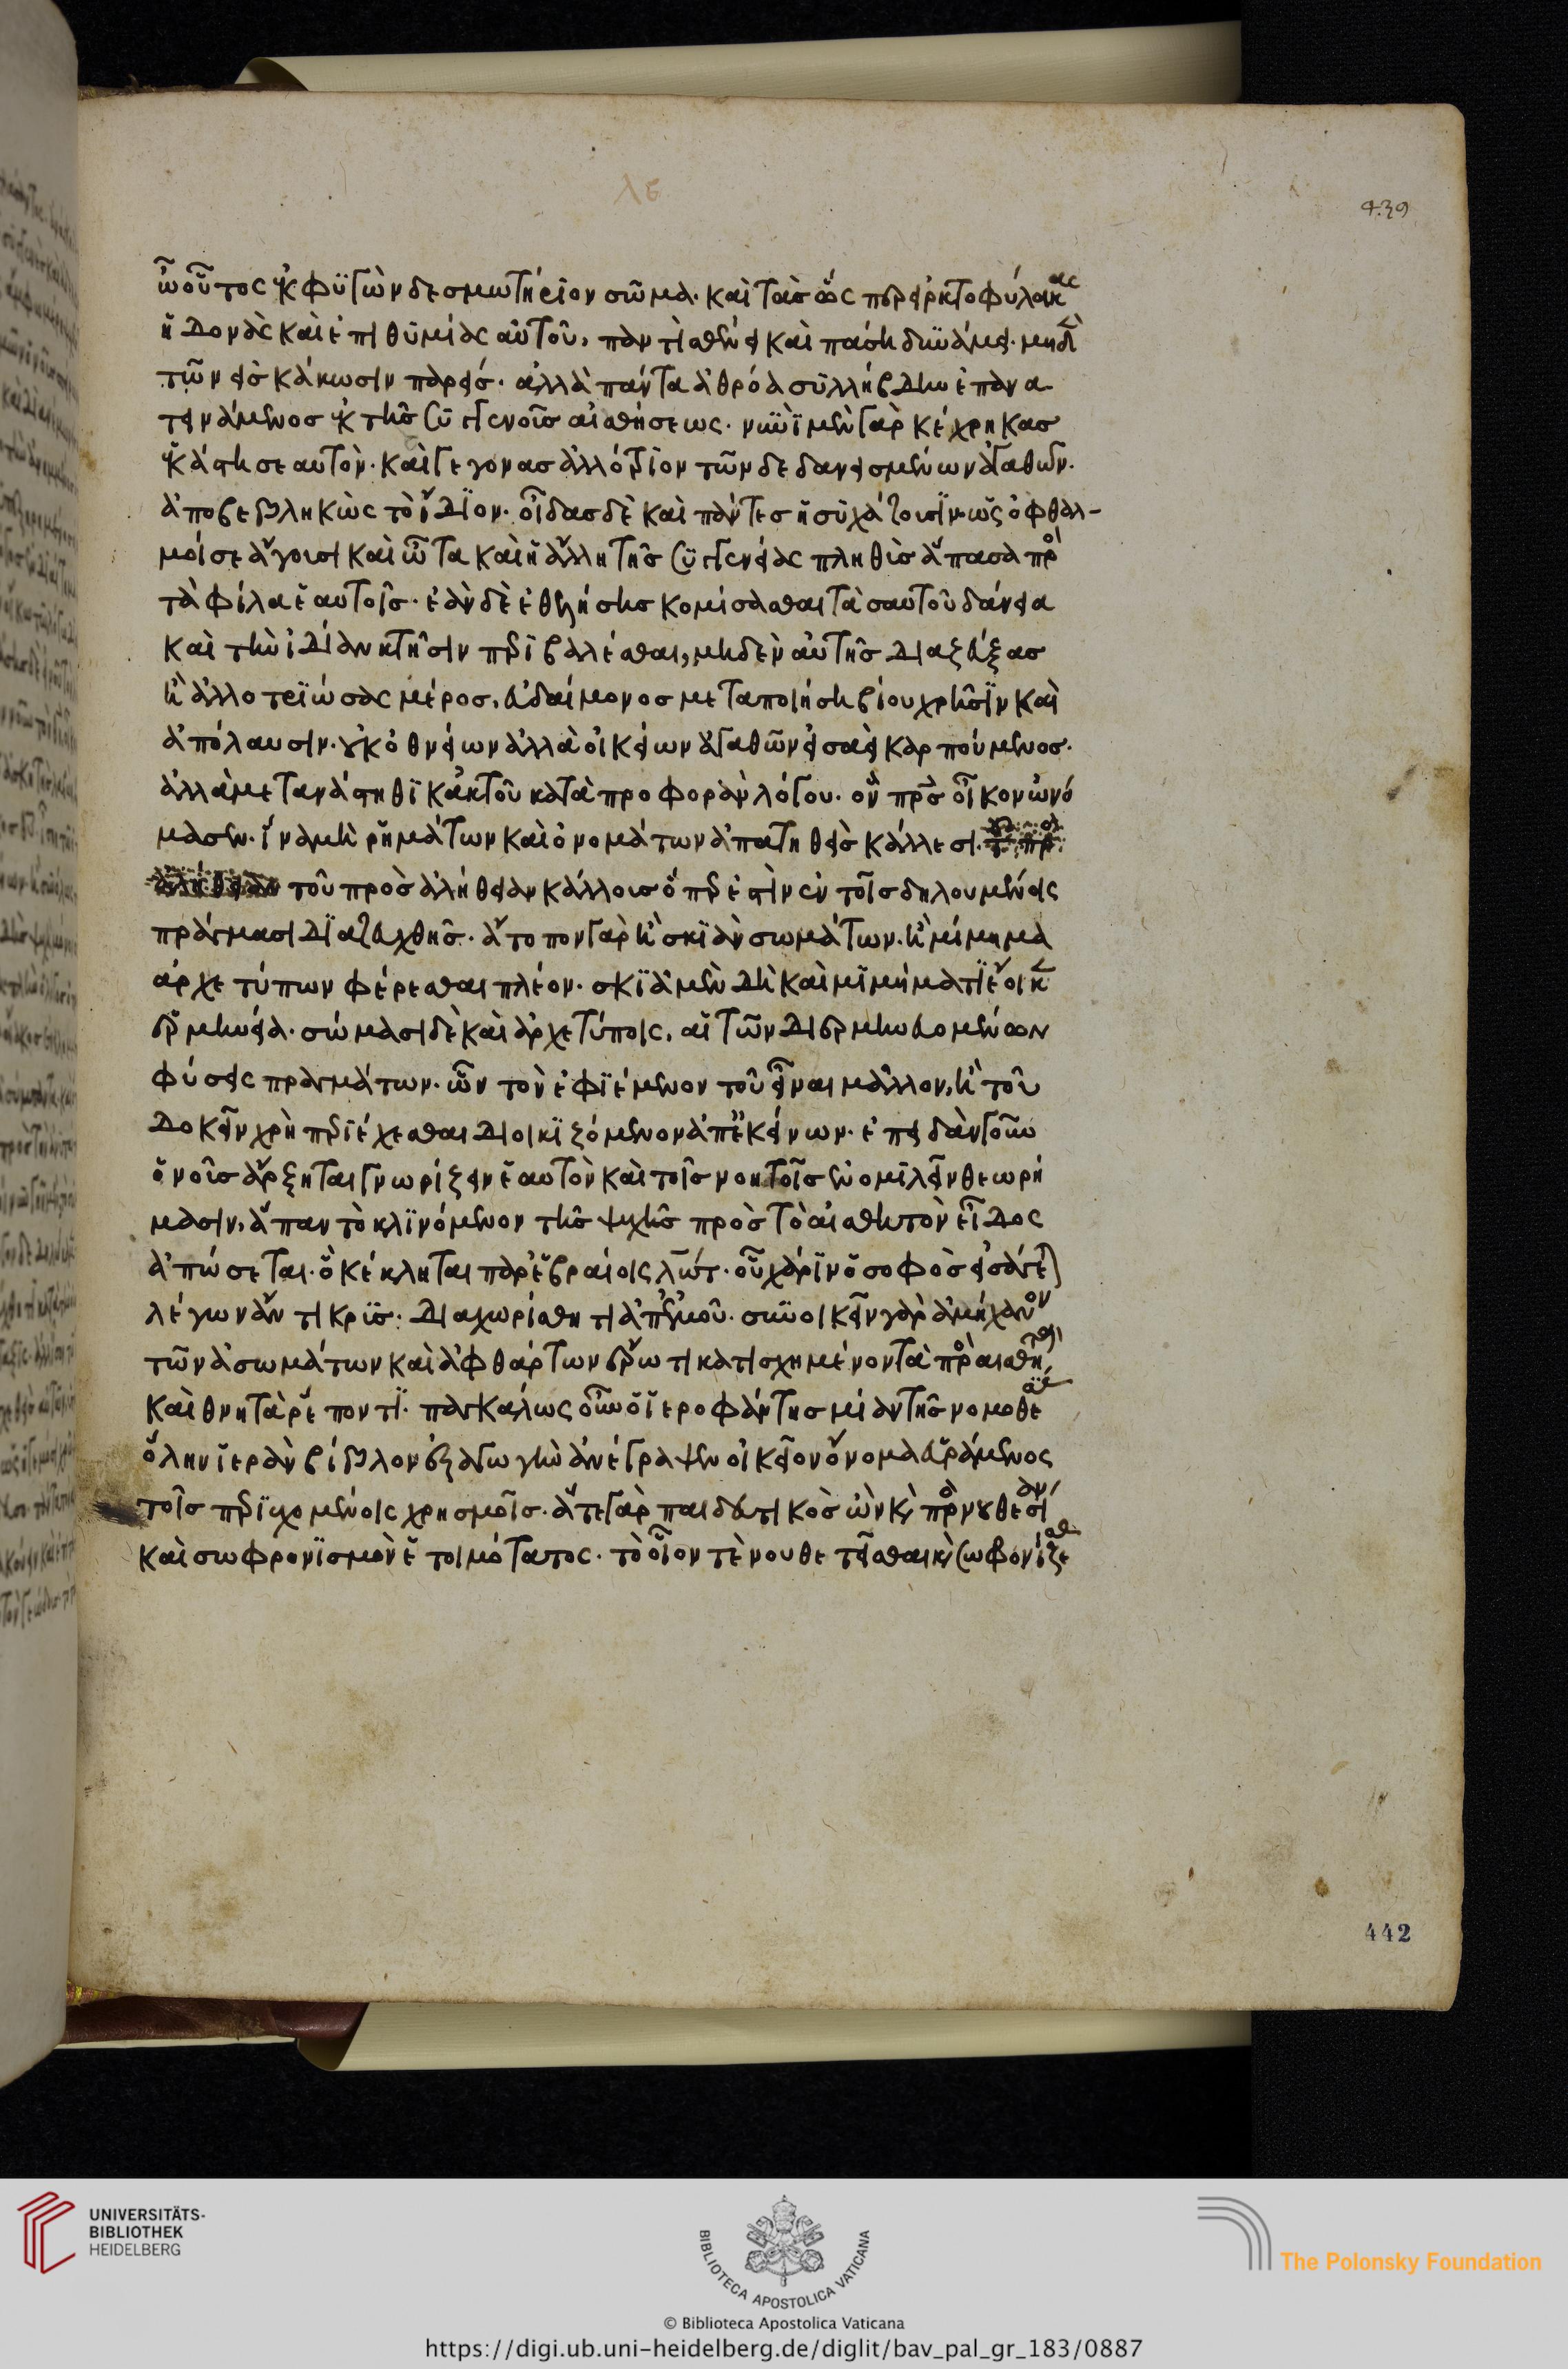 λε
439
ὦ οὗτος ἐκφυγὼν δεσμωτήριον σῶμα· καὶ τὰς ὡς περ εἱρκτοφύλακας
ἡδονὰς καὶ ἐπιθυμίας αὐτοῦ, παντὶ σθένει καὶ πάση δυνάμει· μηδὲν
τῶν εἰς κάκωσιν παρείς· ἀλλὰ πάντα ἀθρόα συλλήβδην ἐπανα
τεινάμενος ἐκ τῆς συγγενοῦς αἰσθήσεως· νυνὶ μὲν γὰρ κέχρηκας
ἑκάστη σεαυτὸν· καὶ γέγονας ἀλλότριον τῶν δεδανεισμένων ἀγαθῶν·
ἀποβεβληκὼς τὸ ἴδιον· οἶδας δὲ καὶ πάντες ἡσυχάζουσιν· ὡς ὀφθαλ-
μοί σε ἄγουσι καὶ ὦτα καὶ ἡ ἄλλη τῆς συγγενείας πληθὺς ἅπασα πρὸς
τὰ φίλα ἑαυτοῖς· ἐὰν δὲ ἐθελήσης κομίσασθαι τὰ σαυτοῦ δάνεια
καὶ τὴν ἰδίαν κτῆσιν περιβαλέσθαι, μηδὲν αὐτῆς διαζεύξας
ἢ ἀλλοτριώσας μέρος, εὐδαίμονος μεταποιήση βίου χρῆσιν καὶ
ἀπόλαυσιν· οὐκ ὀθνείων ἀλλὰ οἰκείων ἀγαθῶν εἰσαεὶ καρπούμενος·
ἀλλὰ μετανάστηθι κἀκ τοῦ κατὰ προφορὰν λόγου· ὃν πρὸς οἶκον ὠνό
μασεν· ἵνα μὴ ῥημάτων καὶ ὀνομάτων ἀπατηθεὶς κάλλεσι·
τοῦ πρὸς ἀλήθειαν κάλλους ὅπερ ἐστὶν ἐν τοῖς δηλουμένοις
πράγμασι διαζευχθῆς· ἄτοπον γὰρ ἢ σκιὰν σωμάτων· ἢ μίμημα
ἀρχετύπων φέρεσθαι πλέον· σκιᾶ μὲν δὴ καὶ μιμήματι ἔοικεν
ἑρμηνεία· σώμασι δὲ καὶ ἀρχετύποις, αἱ τῶν διερμηνευομένων
φύσεις πραγμάτων· ὧν τὸν ἐφιέμενον τοῦ εἶναι μᾶλλον, ἢ τοῦ
δοκεῖν χρὴ περιέχεσθαι διοικιζόμενον ἀπ' ἐκείνων· ἐπειδὰν γοῦν
ὁ νοῦς ἄρξηται γνωρίζειν ἑαυτὸν καὶ τοῖς νοητοῖς ἐνομιλεῖν θεωρή
μασιν, ἅπαν τὸ κλινόμενον τῆς ψυχῆς πρὸς τὸ αἰσθητὸν εἶδος
ἀπώσεται· ὃ κέκληται παρ' ἑβραίοις λώτ· οὗ χάριν ὁ σοφὸς εἰσάγεται
λέγων ἄντικρις· διαχωρίσθητι ἀπ' ἐμοῦ· συνοικεῖν γὰρ ἀμήχανον
τῶν ἀσωμάτων καὶ ἀφθάρτων ἔρωτι κατισχημένον τὰ πρὸς αἰσθητὰ
καὶ θνητὰ ῥέποντι· παγκάλως οὖν ὁ ἱεροφάντης μίαν τῆς νομοθεσίας
ὅλην ἱερὰν βίβλον ἐξαγωγὴν ἀνέγραψεν οἰκεῖον ὄνομα εὑράμενος
τοῖς περιεχομένοις χρησμοῖς· ἅτε γὰρ παιδευτικὸς ὢν καὶ πρὸς νουθεσίαν
καὶ σωφρονισμὸν ἑτοιμότατος· τὸ οἷόν τε νουθετεῖσθαι καὶ σωφρονίζεσθ
442
UNIVERSITÄTS-
BIBLIOTHEK
HEIDELBERG
BIBLIOTECA APOSTOLICA VATICANA
The Polonsky Foundation
© Biblioteca Apostolica Vaticana
https://digi.ub.uni-heidelberg.de/diglit/bav_pal_gr_183/0887